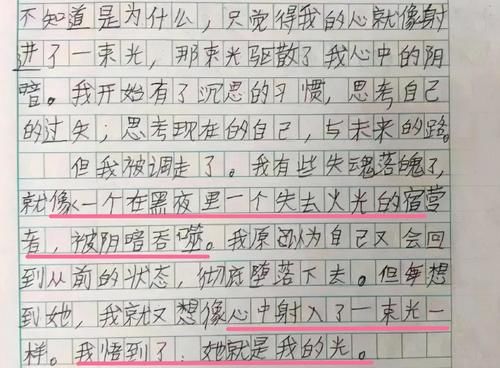 不知道是为什么，只觉得我的心就像射
进了一束光，那束光驱散了我心中的阴
暗。我开始有了沉思的习惯，思考自己
的过失；思考现在的自己，与未来的路。
但我被调走了。我有些失魂落魄了，
就像一个在黑夜里一个失去火光的宿营
者，被阴暗吞噬。我原以为自己又会回
到从前的状态，彻底堕落下去。但每想
到她，我就又想像心中射入了一束光一
样。我悟到了：她就是我的光。